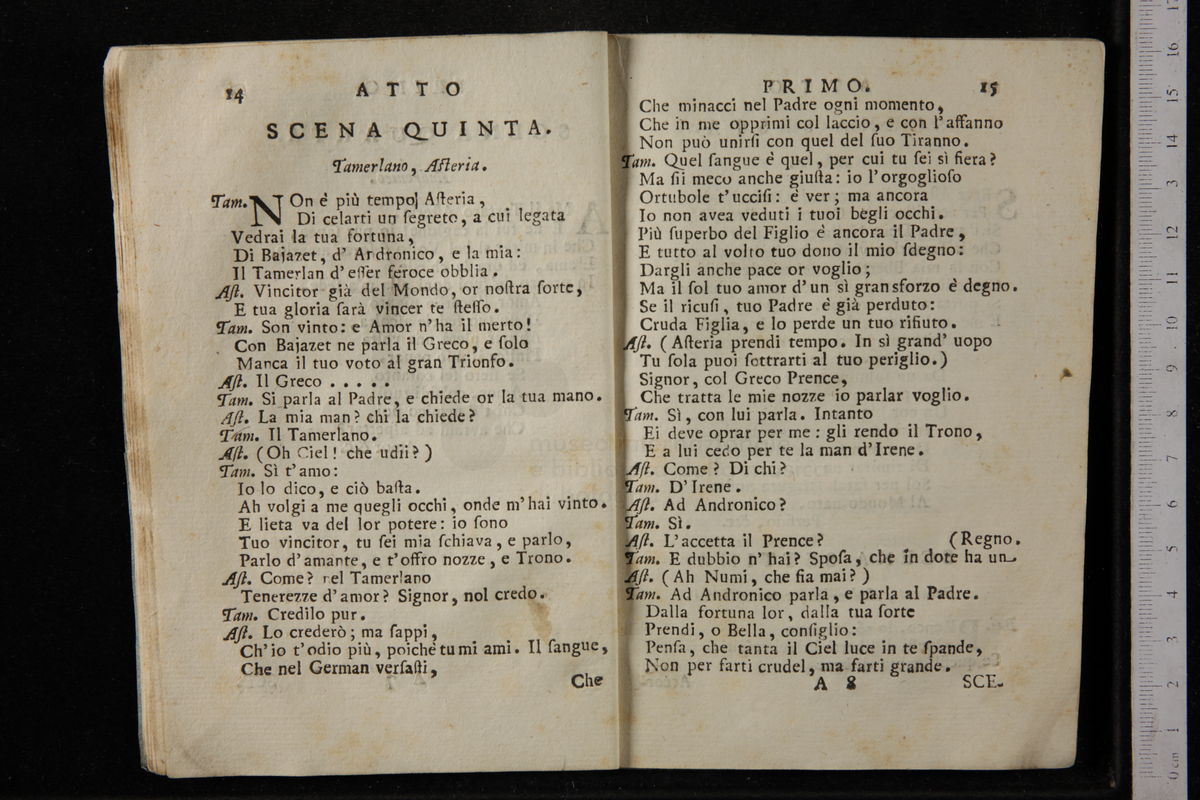 14 ATTO
SCENA QUINTA.
Tamerlano, Aſteria.
Tam. NOn è più tempo, Aſteria,
Di celarti un ſegreto, a cui legata
Vedrai la tua fortuna,
Di Bajazet, d' Ardronico, e la mia:
Il Tamerlan d'eſſer feroce obblia.
Aſt. Vincitor già del Mondo, or noſtra ſorte,
E tua gloria ſarà vincer te ſteſſo.
Tam. Son vinto: e Amor n'ha il merto!
Con Bajazet ne parla il Greco, e ſolo
Manca il tuo voto al gran Trionfo.
Aſt. Il Greco . . . . .
Tam. Si parla al Padre, e chiede or la tua mano.
Aſt. La mia man? chi la chiede?
Tam. Il Tamerlano.
Aſt. (Oh Ciel! che udii?)
Tam. Sì t'amo:
Io lo dico, e ciò baſta.
Ah volgi a me quegli occhi, onde m'hai vinto.
E lieta va del lor potere: io ſono
Tuo vincitor, tu ſei mia ſchiava, e parlo,
Parlo d'amante, e t'offro nozze, e Trono.
Aſt. Come? nel Tamerlano
Tenerezze d'amor? Signor, nol credo.
Tam. Credilo pur.
Aſt. Lo crederò; ma ſappi,
Ch'io t'odio più, poichè tu mi ami. Il ſangue,
Che nel German verſaſti,
Che
PRIMO. 15
Che minacci nel Padre ogni momento,
Che in me opprimi col laccio, e con l'affanno
Non può unirſi con quel del ſuo Tiranno.
Tam. Quel ſangue è quel, per cui tu ſei sì fiera?
Ma ſii meco anche giuſta: io l'orgoglioſo
Ortubole t'ucciſi: è ver; ma ancora
Io non avea veduti i tuoi begli occhi.
Più ſuperbo del Figlio è ancora il Padre,
E tutto al volto tuo dono il mio ſdegno:
Dargli anche pace or voglio;
Ma il ſol tuo amor d'un sì gransforzo è degno.
Se il ricuſi, tuo Padre è già perduto:
Cruda Figlia, e lo perde un tuo rifiuto.
Aſt. (Aſteria prendi tempo. In sì grand' uopo
Tu ſola puoi ſottrarti al tuo periglio.)
Signor, col Greco Prence,
Che tratta le mie nozze io parlar voglio.
Tam. Sì, con lui parla. Intanto
Ei deve oprar per me: gli rendo il Trono,
E a lui cedo per te la man d'Irene.
Aſt. Come? Di chi?
Tam. D'Irene.
Aſt. Ad Andronico?
Tam. Sì.
Aſt. L'accetta il Prence? (Regno.
Tam. E dubbio n' hai? Spoſa, che in dote ha un
Aſt. (Ah Numi, che fia mai?)
Tam. Ad Andronico parla, e parla al Padre.
Dalla fortuna lor, dalla tua ſorte
Prendi, o Bella, conſiglio:
Penſa, che tanta il Ciel luce in te ſpande,
Non per farti crudel, ma farti grande.
A 8 SCE-